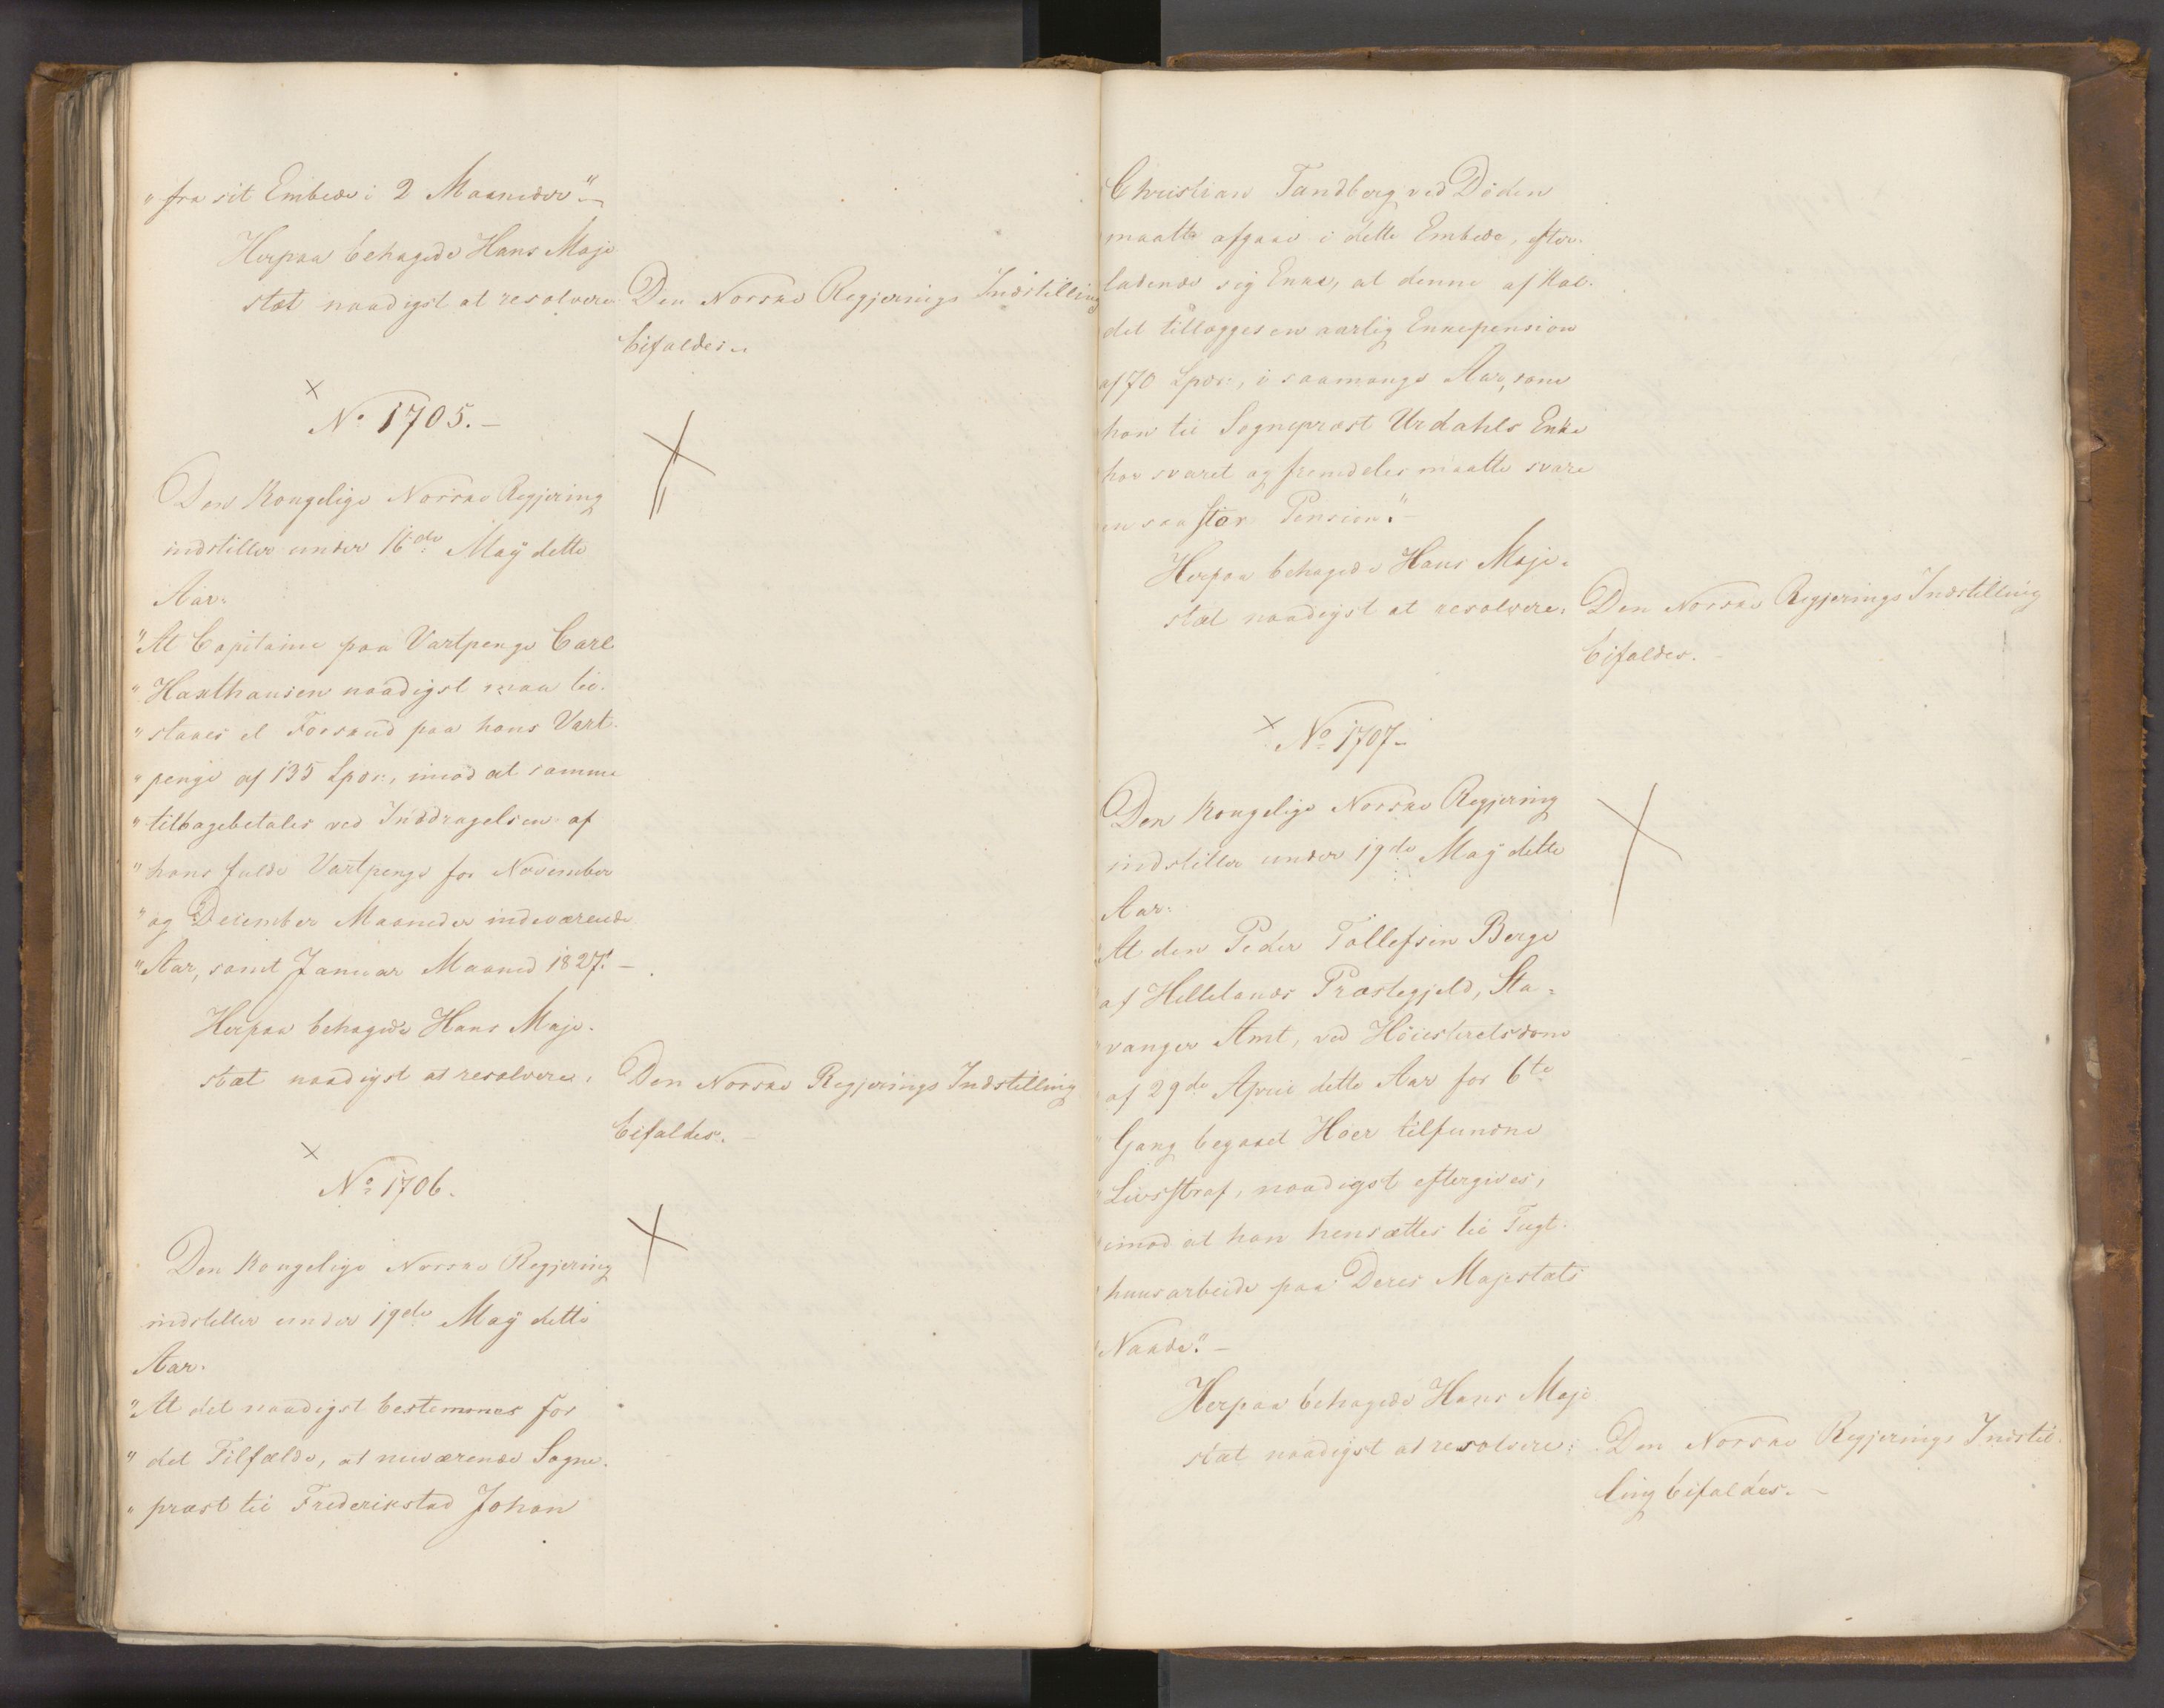 " fra sit Embede i 2 Maaneder" –
Herpaa behagede Hans Maje
stæt naadigst at resolvere: Den Norske Regjerings Indstilling
bifaldes.
×
No 1705. –
Den Kongelige Norske Regjering
indstiller under 16de May dette
Aar:
"At Capitaine paa Vartpenge Carl
" Haxthausen naadigst maa til-
" staaes et Forskud paa hans Vart-
" penge af 135 Spdr:, imod at samme
" tilbagebetales ved Inddragelsen af
" hans fulde Vartpenge for November
" og December Maaneder indeværende
" Aar, samt Januar Maaned 1827." –
Herpaa behagede Hans Maje-
stæt naadigst at resolvere: Den Norske Regjerings Indstilling
bifaldes. –
×
No 1706.
Den Kongelige Norske Regjering
indstiller under 19de May dette
Aar:
"At det naadigst bestemmes for
" det Tilfælde, at nuværende Sogne-
" præst til Frederikstad Johan
Christian Tandberg ved Döden
maatte afgaae i dette Embede, efter-
ladende sig Enke, at denne af Kal-
det tillægges en aarlig Enkepension
af 70 Spdr:, i saamange Aar, som
han til Sognepræst Urdahls Enke
har svaret og fremdeles maatte svare
en saa stor Pension." –
Herpaa behagede Hans Maje-
stæt naadigst at resolvere: Den Norske Regjerings Indstilling
bifaldes. –
× No 1707 –
Den Kongelige Norske Regjering
indstiller under 19de May dette
Aar:
"At den Peder Tollefsen Berge
" af Hellelands Præstegjeld, Sta-
" vanger Amt, ved Höiesteretsdom
" af 29de April dette Aar for 6te
" Gang begaaet Hoer tilfundne
" Livsstraf, naadigst eftergives,
" imod at han hensættes til Tugt-
" huusarbeide paa Deres Majestæts
" Naade." –
Herpaa behagede Hans Maje
stæt naadigst at resolvere: Den Norske Regjerings Indstil-
ling bifaldes. –